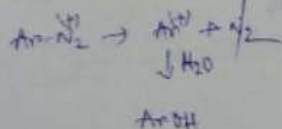 Ar-N₂⁽⁺⁾ → Ar⁽⁺⁾ + N₂
↓ H₂O
ArOH